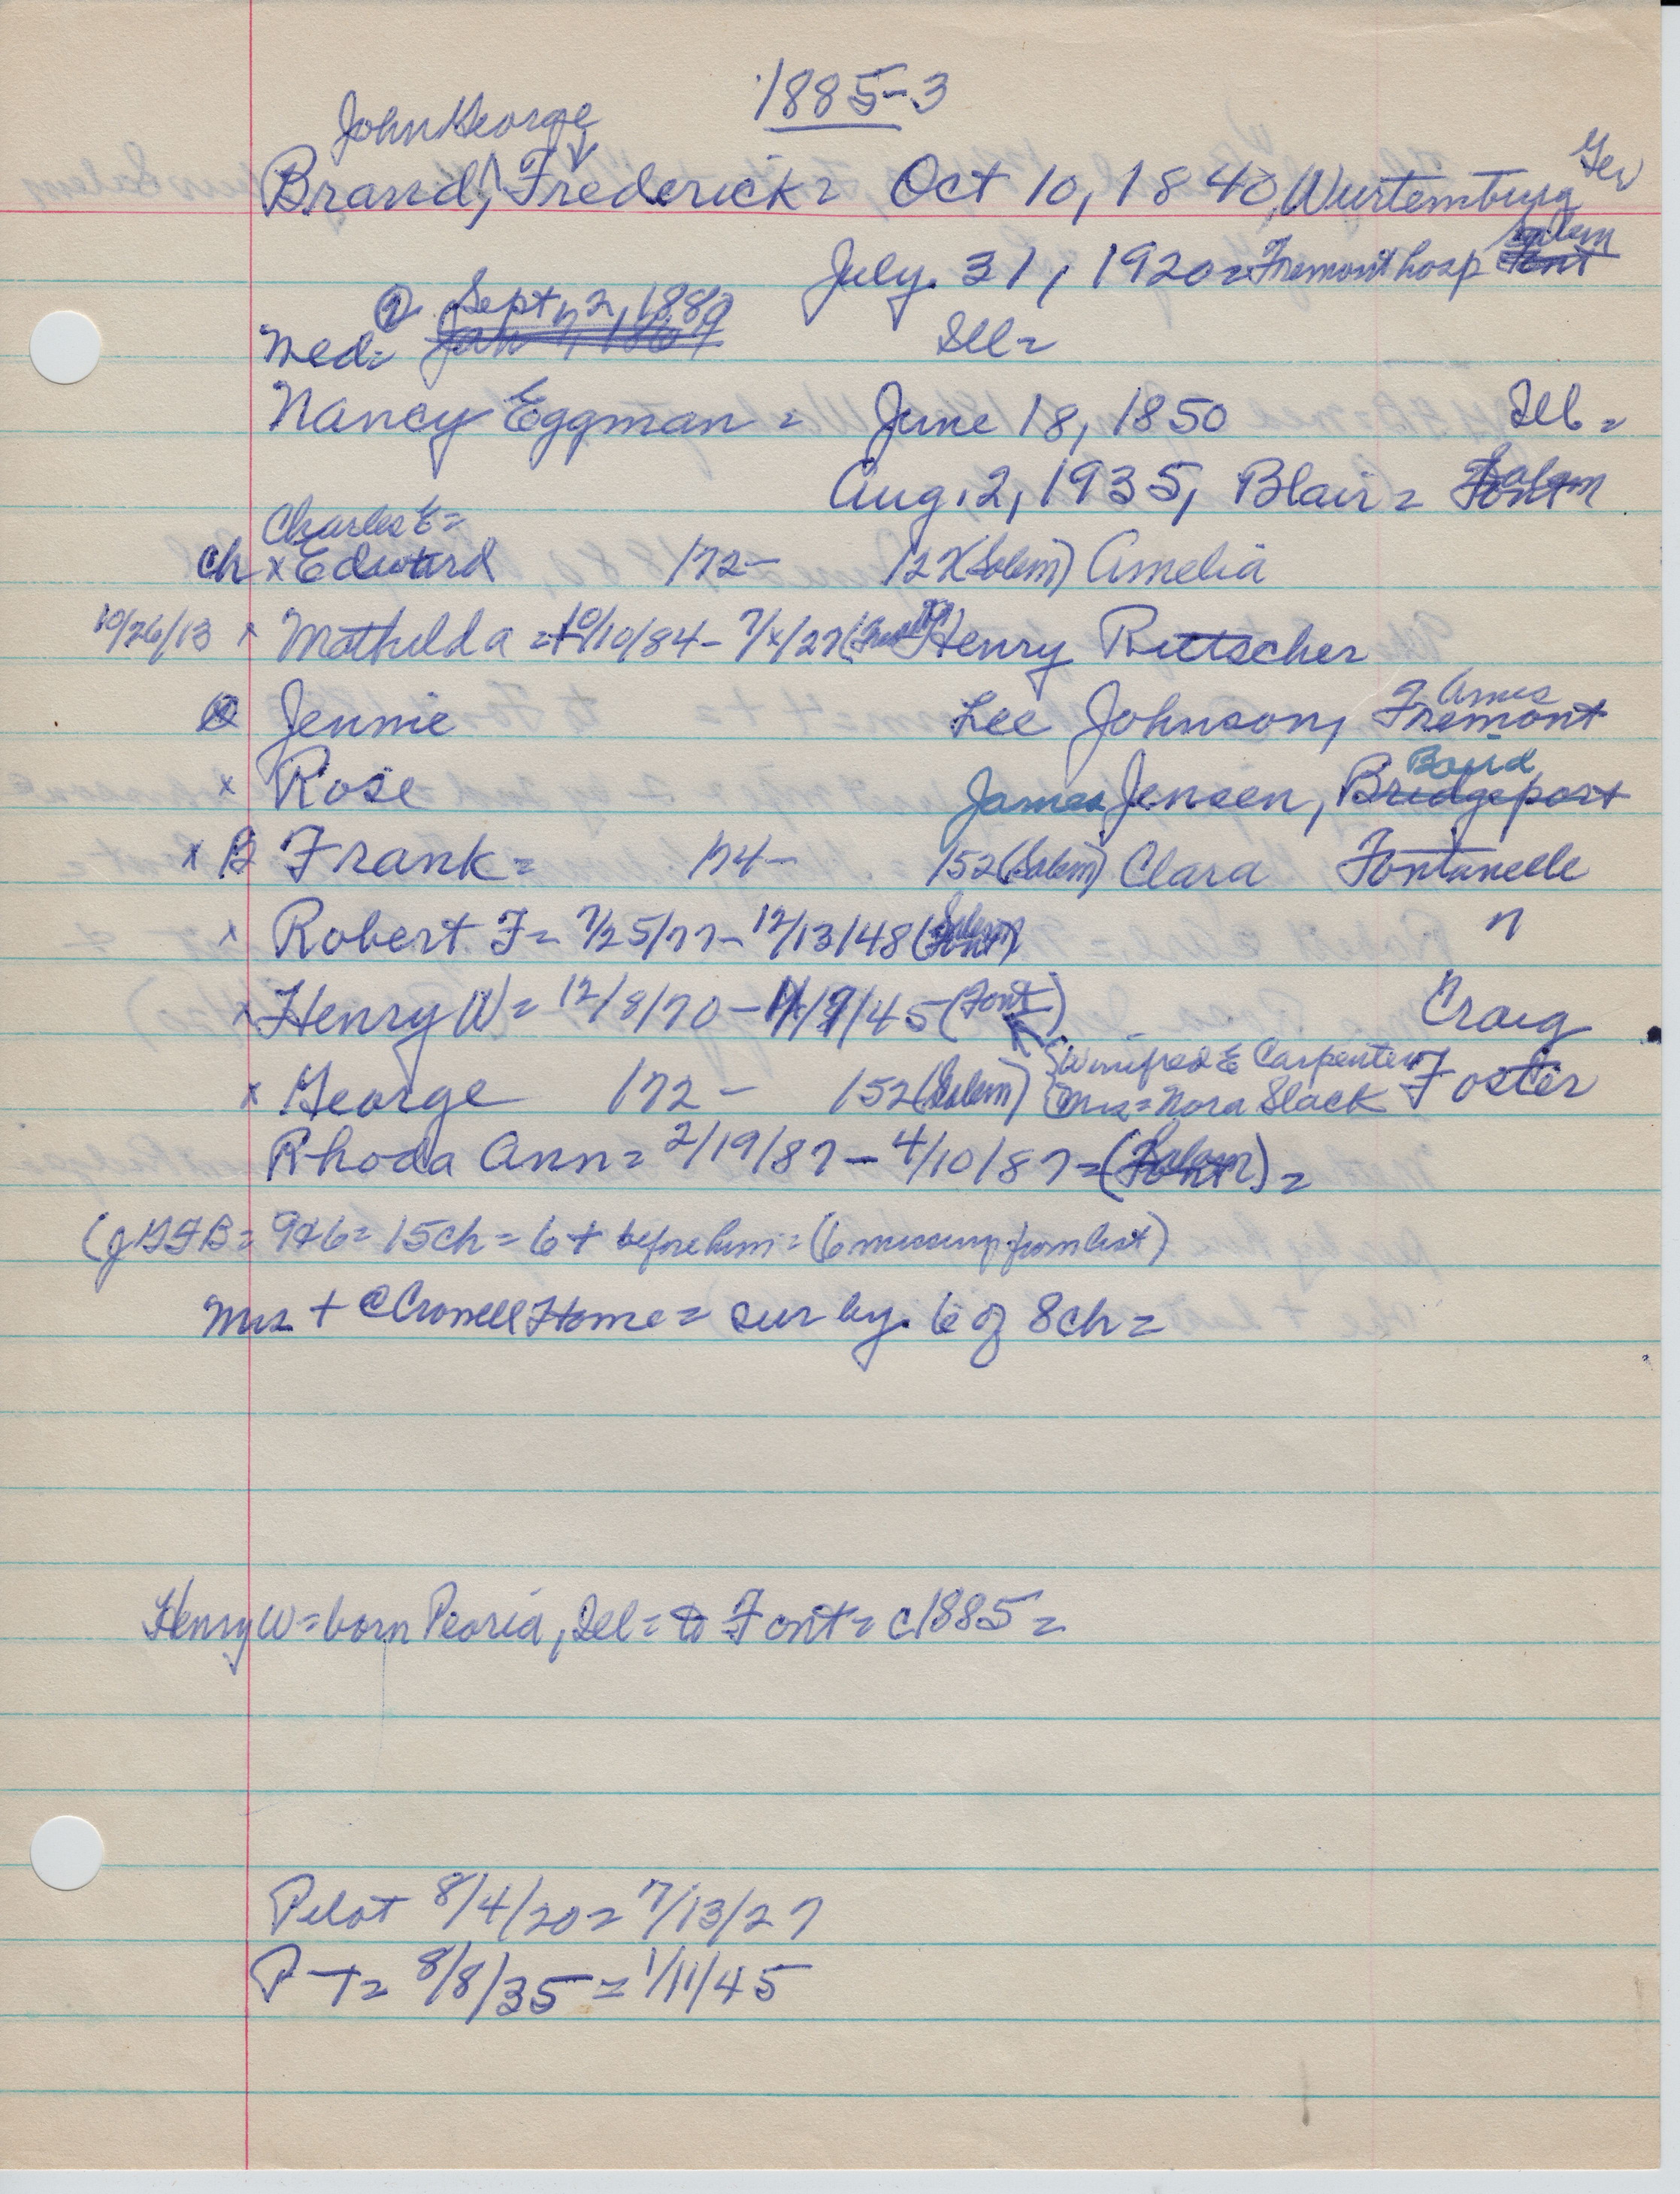 1885-3
John George
Brand, Frederick = Oct 10, 1840, Wurtemburg Ger
July. 31, 1920 = Fremont hosp Salem
② Sept 2, 1869
Med = Ill =
Nancy Eggman = June 18, 1850 Ill =
Aug. 2, 1935, Blair = Salem
Charles E =
ch x Edward 172- 122 (Salem) Amelia
10/26/13 x Mathilda = 10/10/84 - 7/x/27 Henry Rettscher
Jennie Lee Johnson, Fremont Ames
x Rose James Jensen, Bridgeport Boyd
x B Frank = 174- 152 (Salem) Clara Fontanelle
x Robert F = 7/25/77 - 12/13/48 (Salem) "
x Henry W = 12/8/70 - 1/9/45 (Font) Craig
x George 172 - 152 (Salem) {Winifred E Carpenter Foster
Mrs = Nora Slack
Rhoda Ann = 2/19/87 - 4/10/87 = (Salem) =
(JGFB = 9+6 = 15 ch = 6 + before him = (6 missing from list)
Mrs + @ Crowell Home = sur by. 6 of 8 ch =
Henry W = born Peoria, Ill = to Font = c1885 =
Pilot 8/4/20 = 7/13/27
P-T = 8/8/35 = 1/11/45